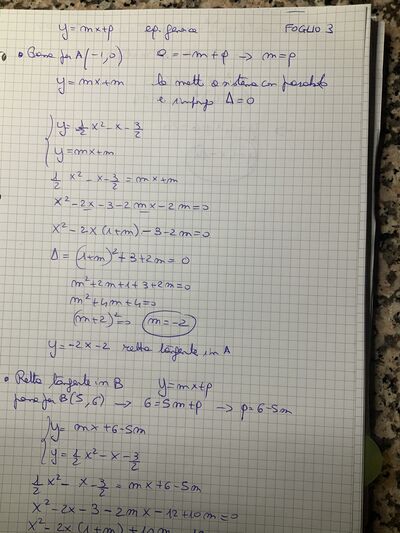 y = mx+p eq. generica FOGLIO 3
• Passa per A(-1,0) 0 = -m+p → m=p
y = mx+m la metto a sistema con parabola
e impongo Δ=0
{ y = 1/2 x² - x - 3/2
{ y = mx+m
1/2 x² - x - 3/2 = mx+m
x² - 2x - 3 - 2mx - 2m = 0
x² - 2x (1+m) - 3 - 2m = 0
Δ = (1+m)² + 3 + 2m = 0
m² + 2m + 1 + 3 + 2m = 0
m² + 4m + 4 = 0
(m+2)² = 0 m = -2
y = -2x - 2 retta tangente in A
• Retta tangente in B y = mx+p
passa per B(5,6) → 6 = 5m+p → p = 6-5m
{ y = mx + 6 - 5m
{ y = 1/2 x² - x - 3/2
1/2 x² - x - 3/2 = mx + 6 - 5m
x² - 2x - 3 - 2mx - 12 + 10m = 0
x² - 2x (1+m) + 10m